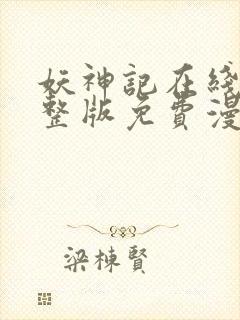 妖神記在綫
整版免費漫
梁棟賢